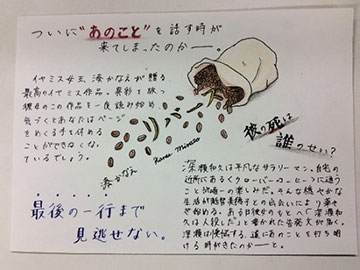 ついに"あのこと"を話す時が
来てしまったのかー。
イヤミス女王、湊かなえが贈る
最高のイヤミス作品。異彩を放つ
これの作品を一度読み始め
気づくとあなたはページ
をめくる手を休める
ことができなく
なっているでしょう。
最後の一行まで
見逃せない。
湊かなえ
Kanae Minato
彼の死は
誰のせい?
深瀬和久は平凡なサラリーマン。自宅の
近所にあるクローバーコーヒーに通う
ことが唯一の楽しみだ。そんな穏やかな
生活が越智美穂子との出会いにより華や
ぎ始める。ある日彼女のもとへ「深瀬和
久は人殺しだ」と書かれた告発文が届く。
深瀬は懊悩する。遂にあのことを打ち明
ける時がきたのかーと。